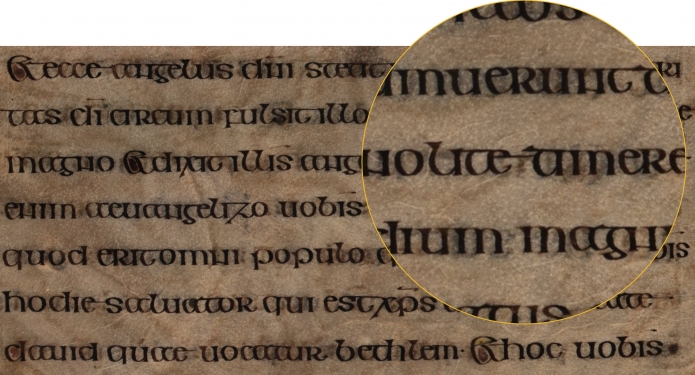 & ecce angelus dn̄i
tas dī circum fulsit illo
magno & dixit illis
enim aeuangelizo uobis
quod erit omni populo
hodie saluator qui est xp̄s
dauid quae uocatur bethlem · & hoc uobis
imuerunt
nolite timere
dium magnu